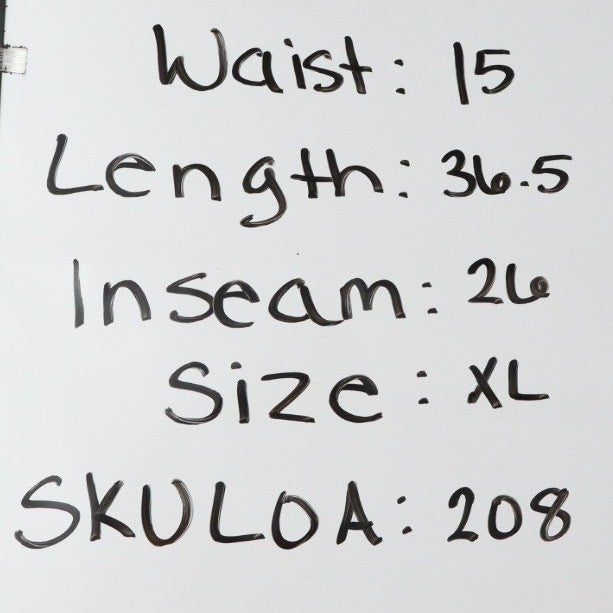 Waist: 15
Length: 36.5
Inseam: 26
Size: XL
SKULOA: 208